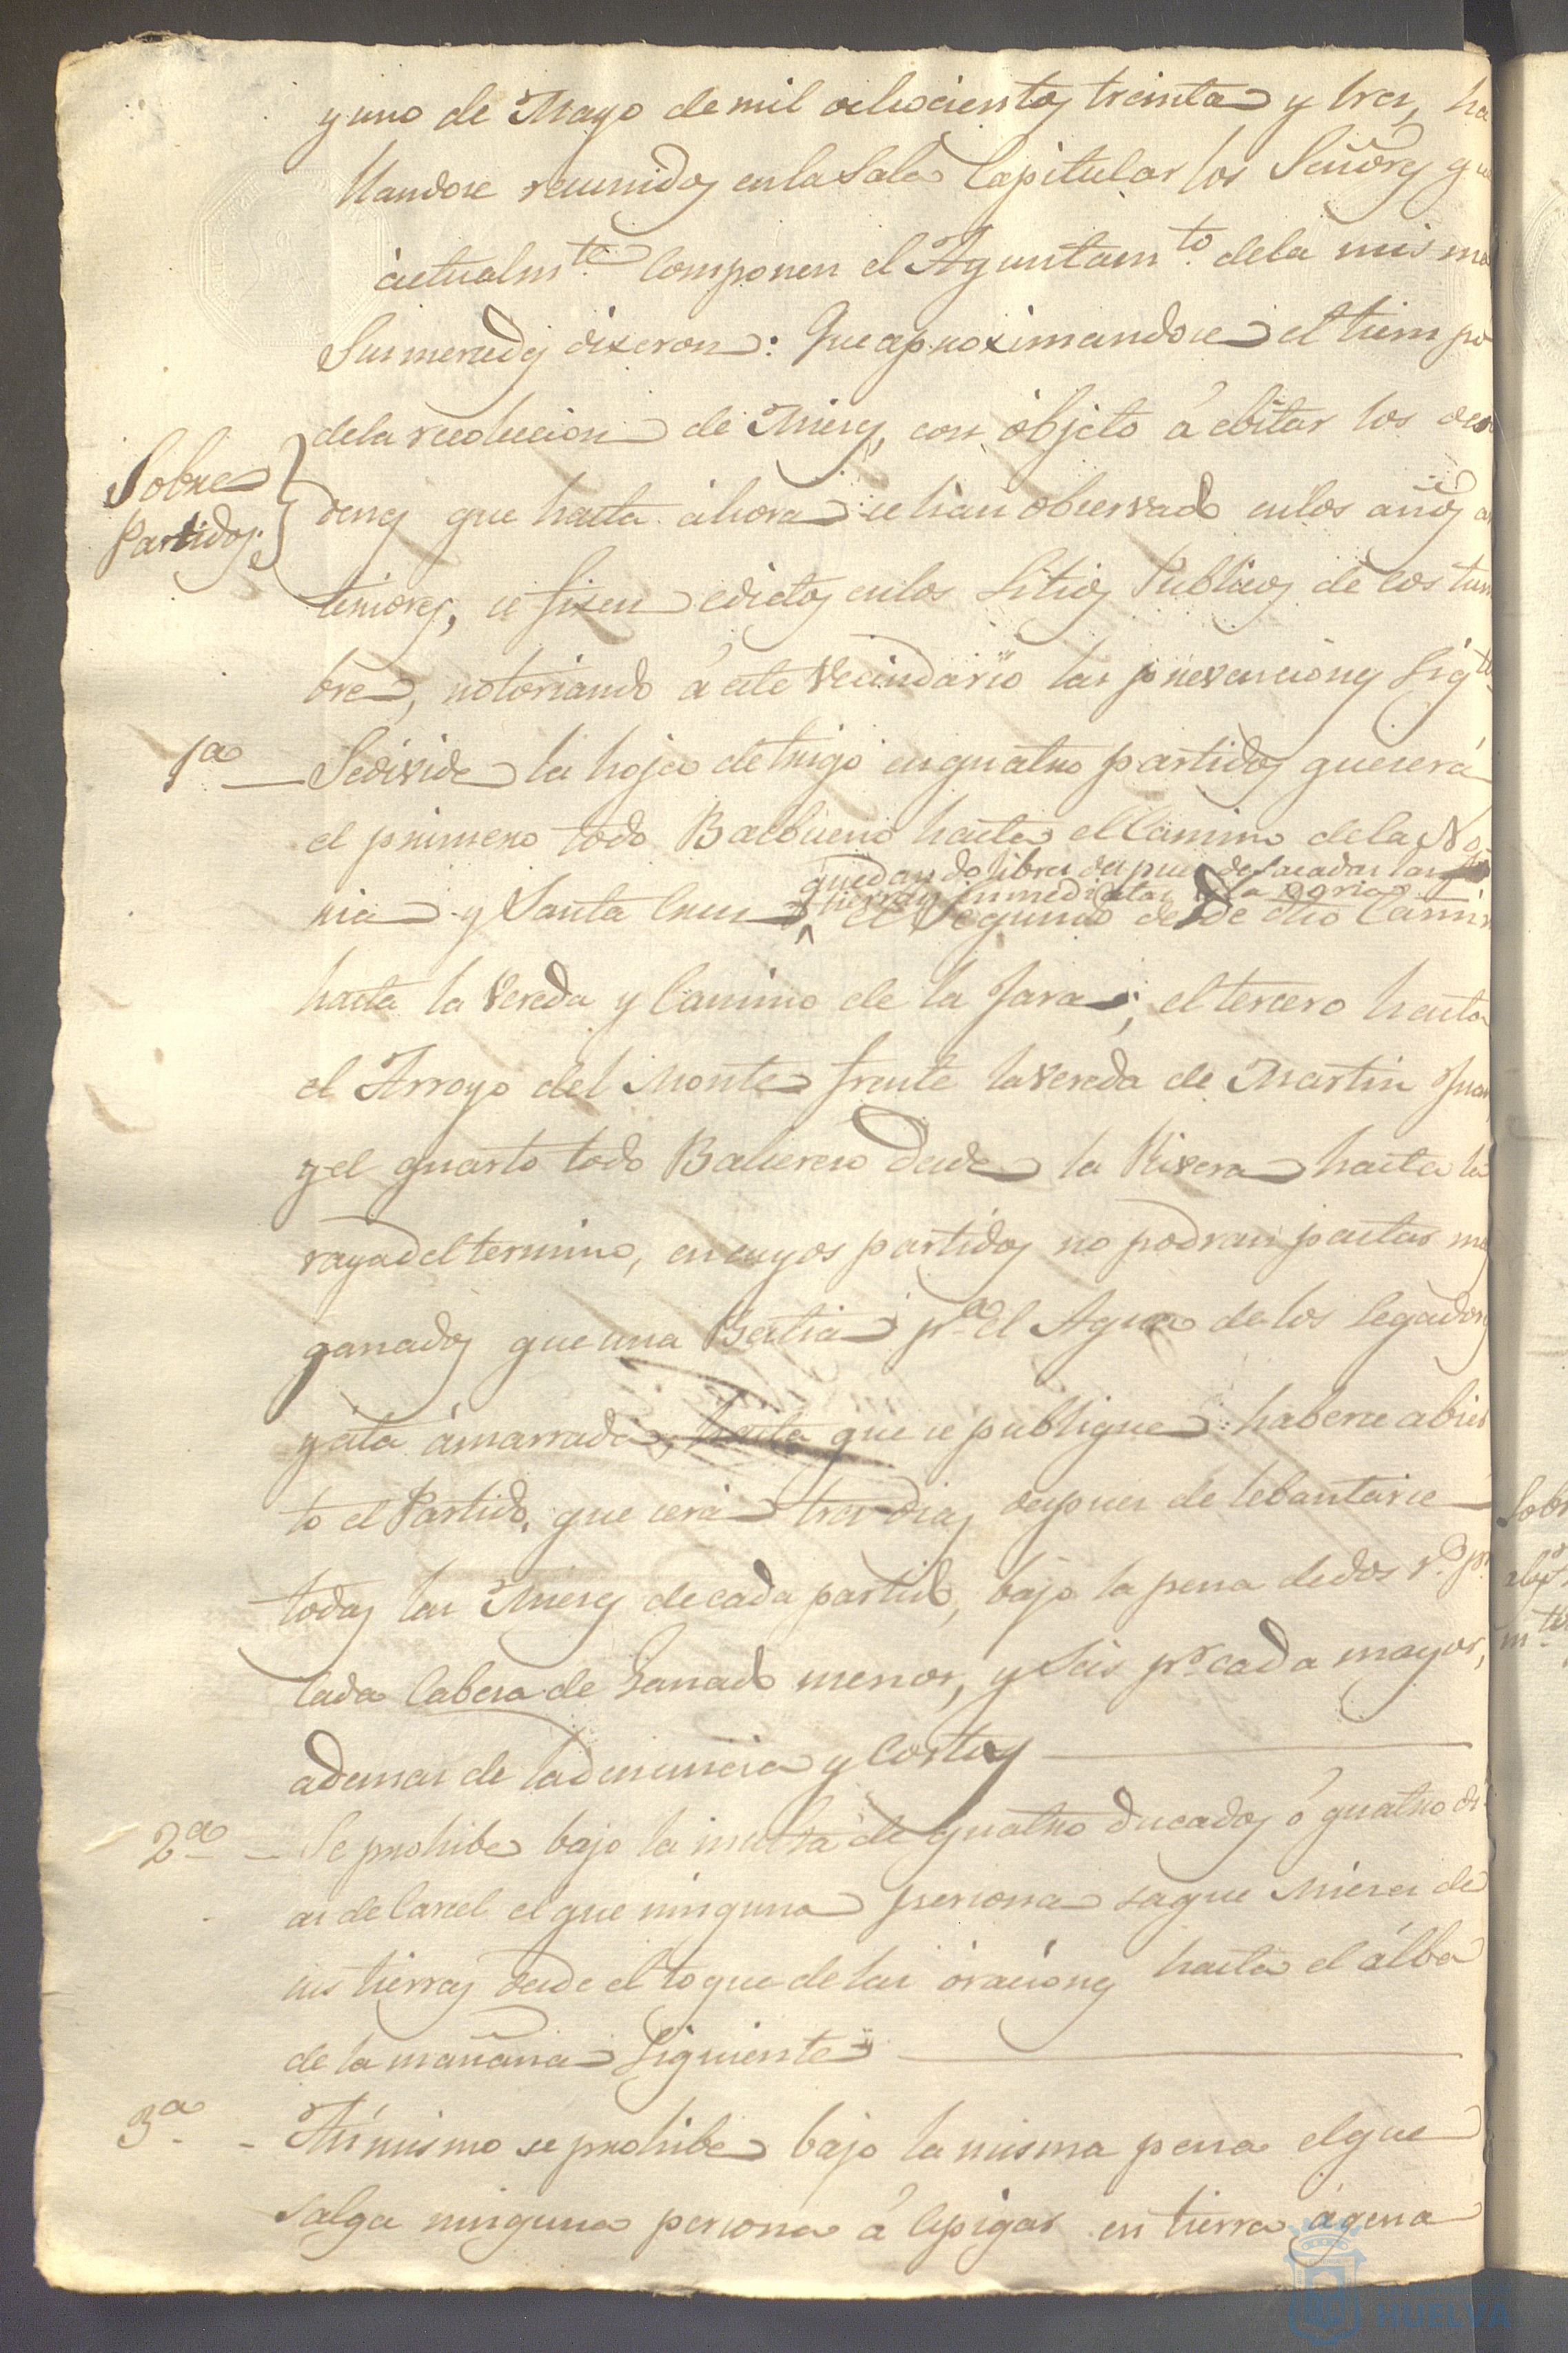 y uno de Mayo de mil ochocientos treinta y tres, ha
llandose reunidos en la Sala Capitular los Señores q.e
actualm.te componen el Ayuntam.to de la misma
Sus mercedes dixeron: Que aproximandose el tiempo
de la recoleccion de Mieses, con objeto á ebitar los desor
Sobre
Partidos.
denes que hasta ahora se han observado en los años an
teriores, se fixen edictos en los Sitios Publicos de costum
bre, notoriando á este Vecindario las prevenciones sig.tes
1.a Se divide la hoja de trigo en quatro partidos que será
el primero todo Balbueno hasta el Camino de la No
quedando libres despues de sacadas las
tierras inmediatas a la noria
ria y Santa Cruz el segundo desde dho Camino
hasta la Vereda y Camino de la Jara; el tercero hasta
el Arroyo del Monte frente la vereda de Martin Juan
y el quarto todo Balserero desde la Rivera hasta la
raya del termino, en cuyos partidos no podran pastar mas
ganados que una Bestia p.a el Agua de los Segadores
y esta ámarrada, hasta que se publique haberse abier
to el Partido, que será tres dias despues de lebantarse
todas las Mieses de cada partido, bajo la pena de dos r.s p.r
cada Cabesa de Ganado menor, y seis p.r cada mayor,
ademas de la denuncia y Costas
2.a Se prohibe bajo la multa de quatro ducados ó quatro di
as de Carcel el que ninguna persona saque Mieses de
sus tierras desde el toque de las oraciones hasta el álba
de la mañana Siguiente
3.a Asi mismo se prohibe bajo la misma pena el que
salga ninguna persona á Espigar en tierra ágena
HUELVA